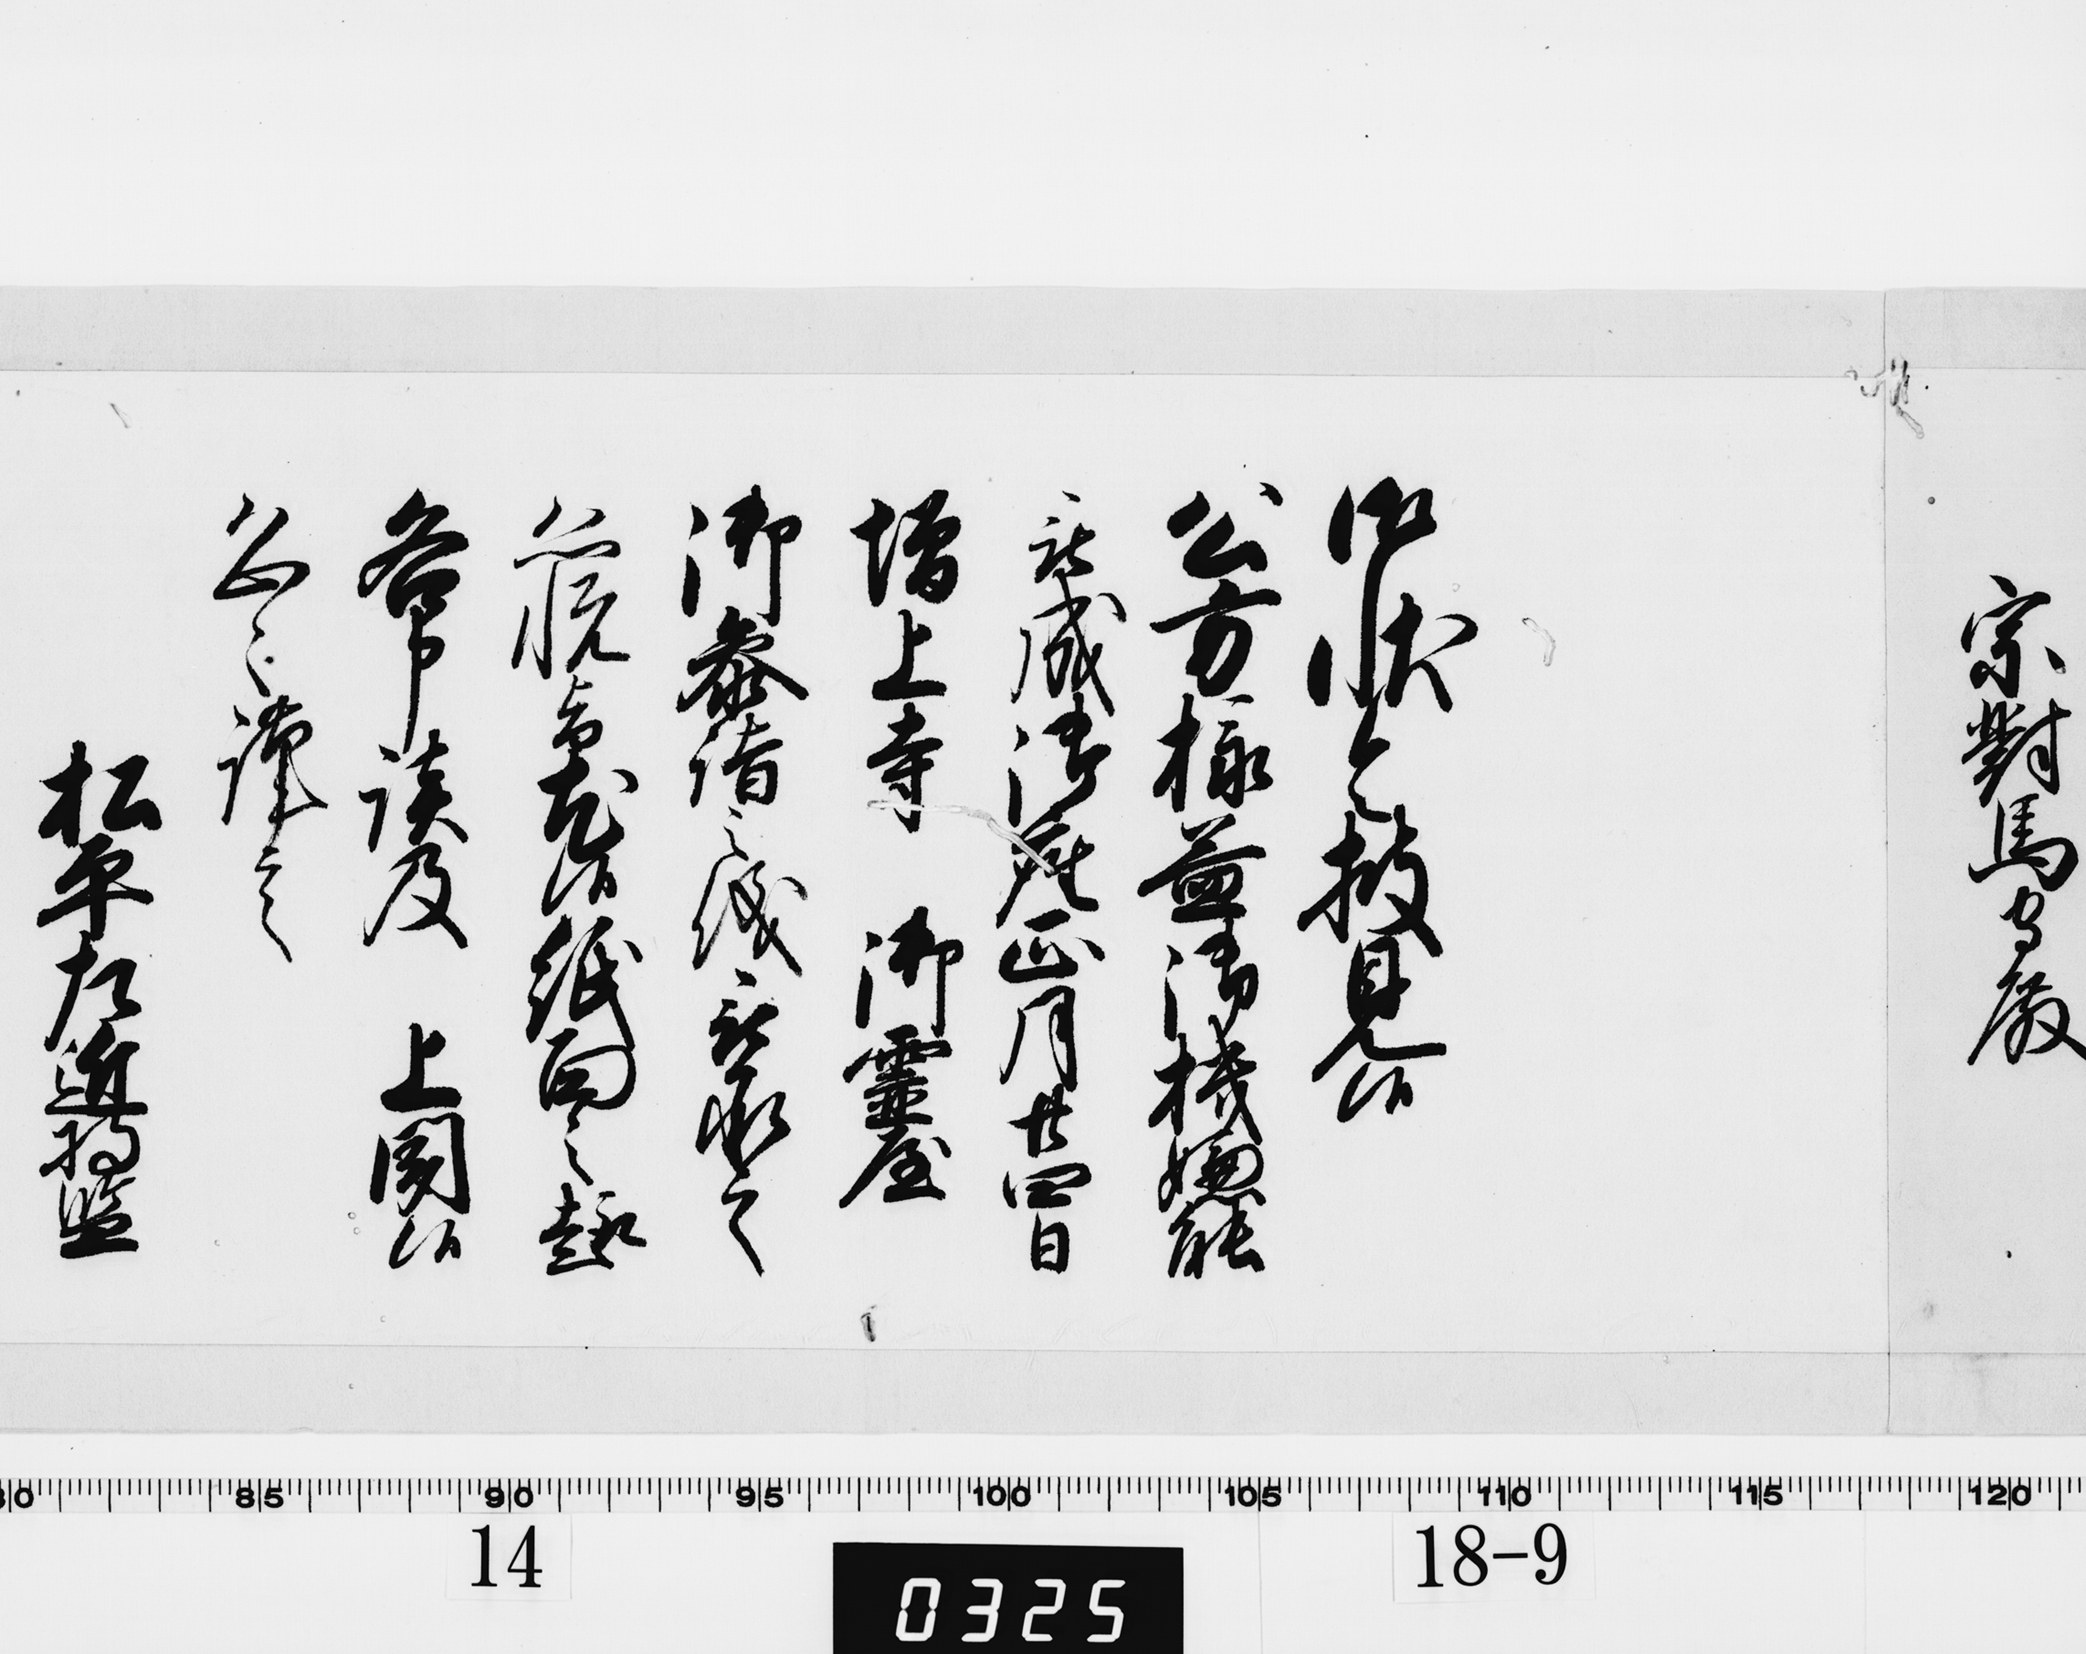 宗對馬守殿
御状令披見候
公方様益御機嫌能
被成御座正月廿四日
増上寺 御霊屋
御参詣之儀被承之
恐悦旨尤候紙面之趣
各申談及 上聞候
恐々謹言
松平左近将監
80 85 90 95 100 105 110 115 120
14
18-9
0325